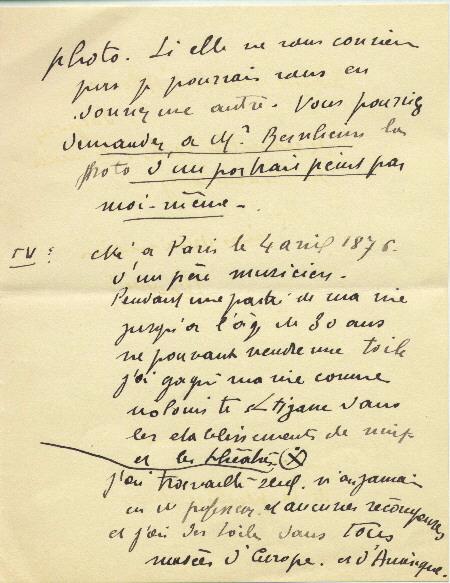 photo. Si elle ne vous convient
pas je pourrais vous en
donner une autre. Vous pourriez
demander à Mr. Bernheim la
photo d'un portrait peint par
moi-même.
IV° Né à Paris le 4 avril 1876.
d'un père musicien.
Pendant une partie de ma vie
jusqu'à l'âge de 30 ans
ne pouvant vendre une toile
j'ai gagné ma vie comme
violoniste Tzigane dans
les établissements de nuit
et les théâtres (X)
j'ai travaillé seul. n'ai jamais
eu un professeur. et aucunes récompenses
et j'ai des toiles dans tous
musées d'Europe. et d'Amérique.